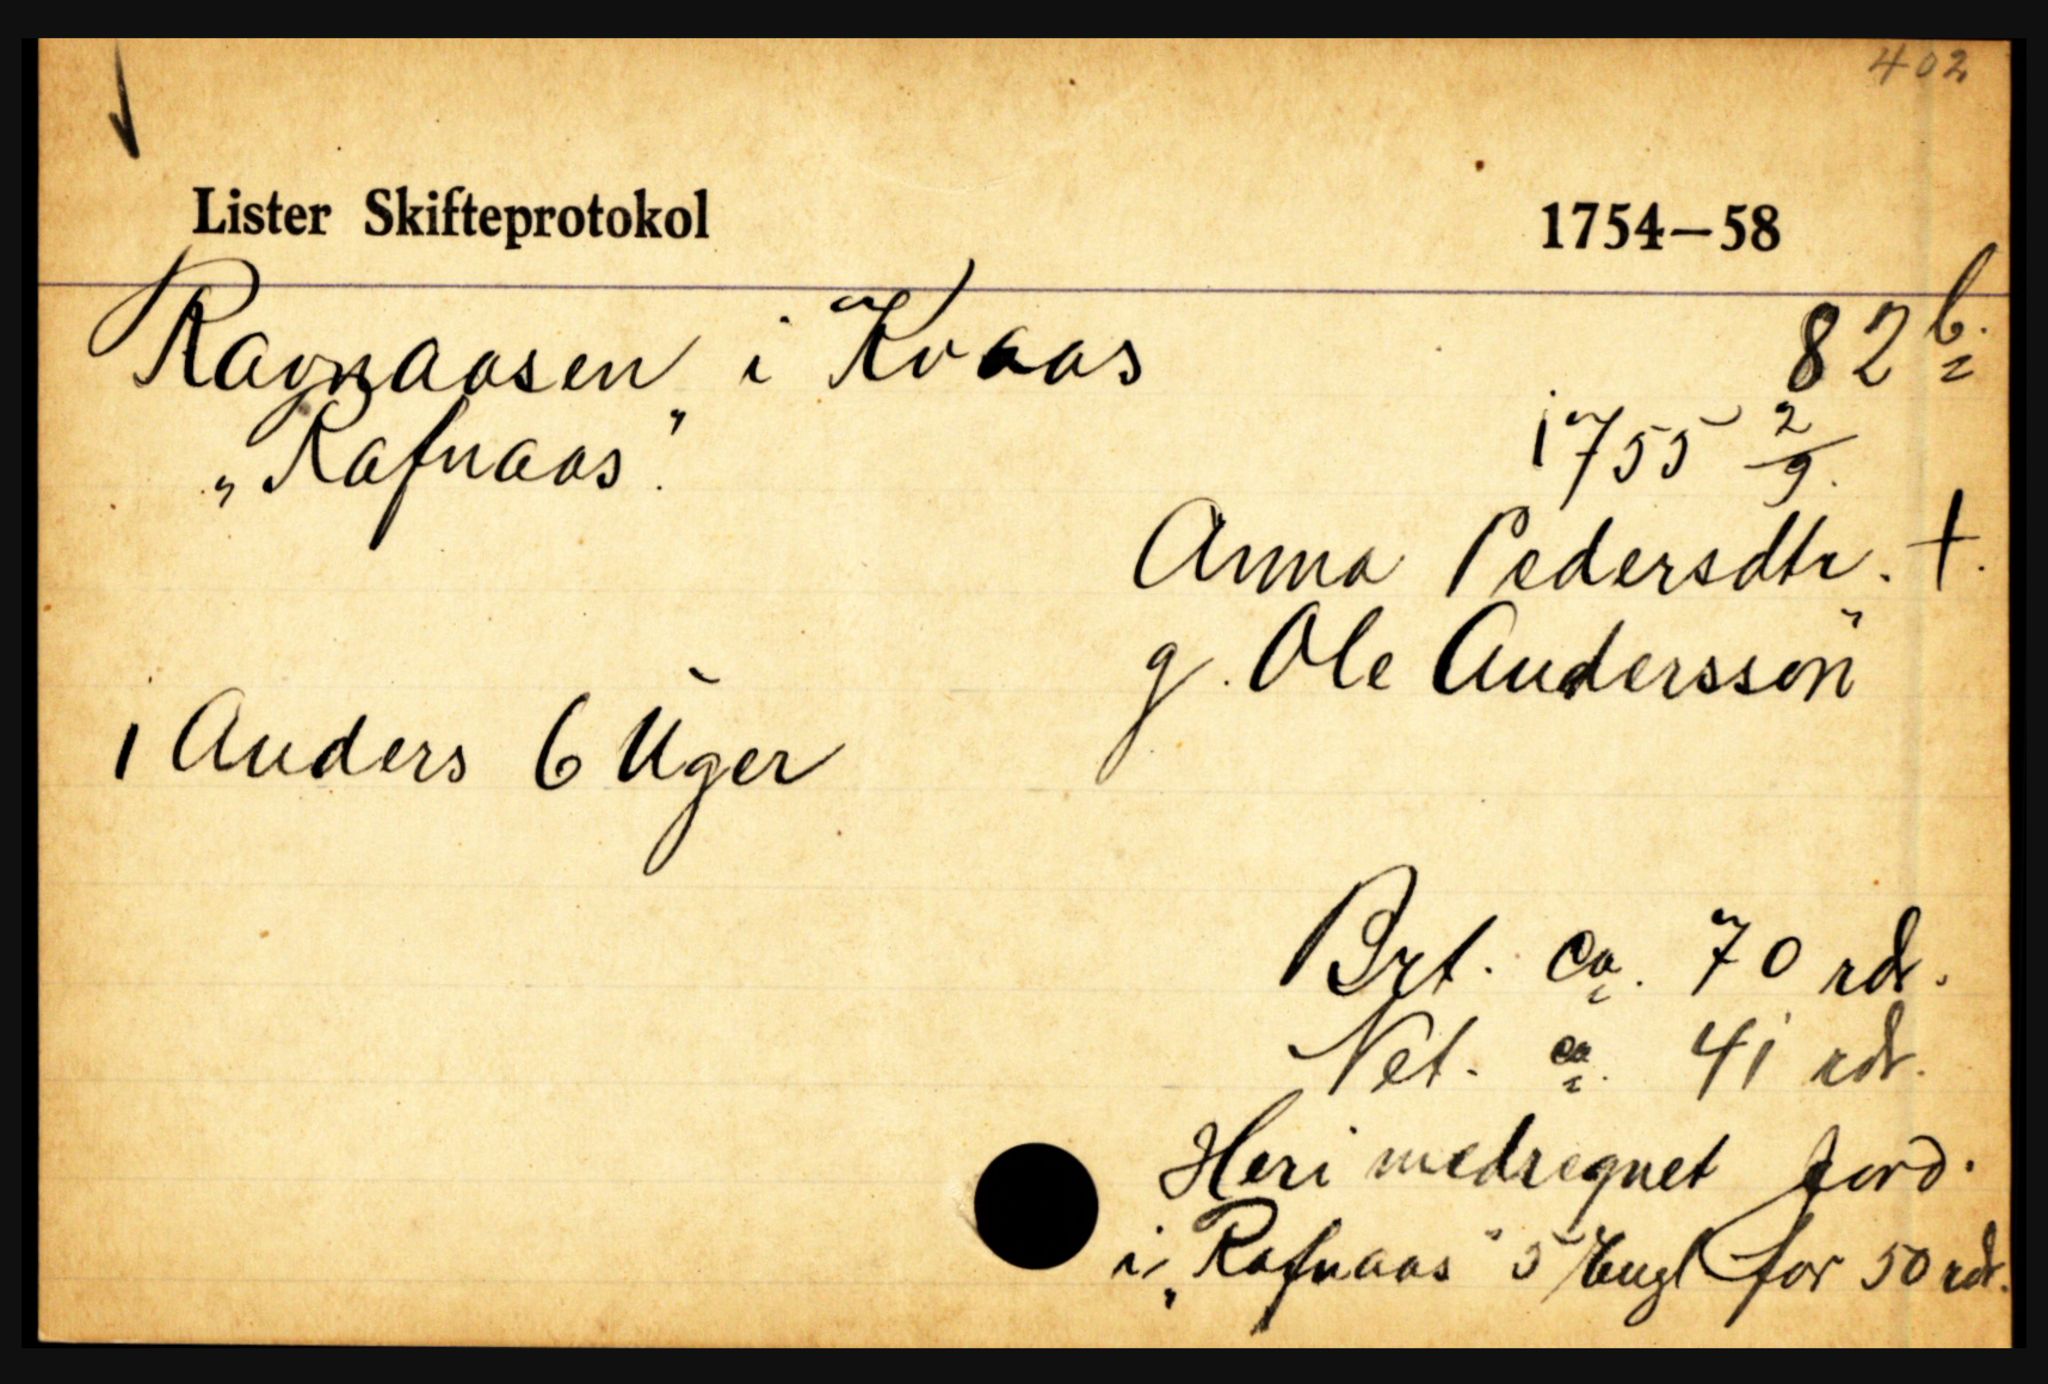 402
Lister Skifteprotokol 1754—58
Ravnaasen i Kvaas 82 b.
„Rafnaas". 1755 2/9.
Anna Pedersdtr. †.
g. Ole Andersson
1 Anders 6 Uger
Brt. ca. 70 rdr.
Net. ca. 41 rdr.
Heri medregnet Jord.
i „Rafnaas" 5 Eugl for 50 rdr.